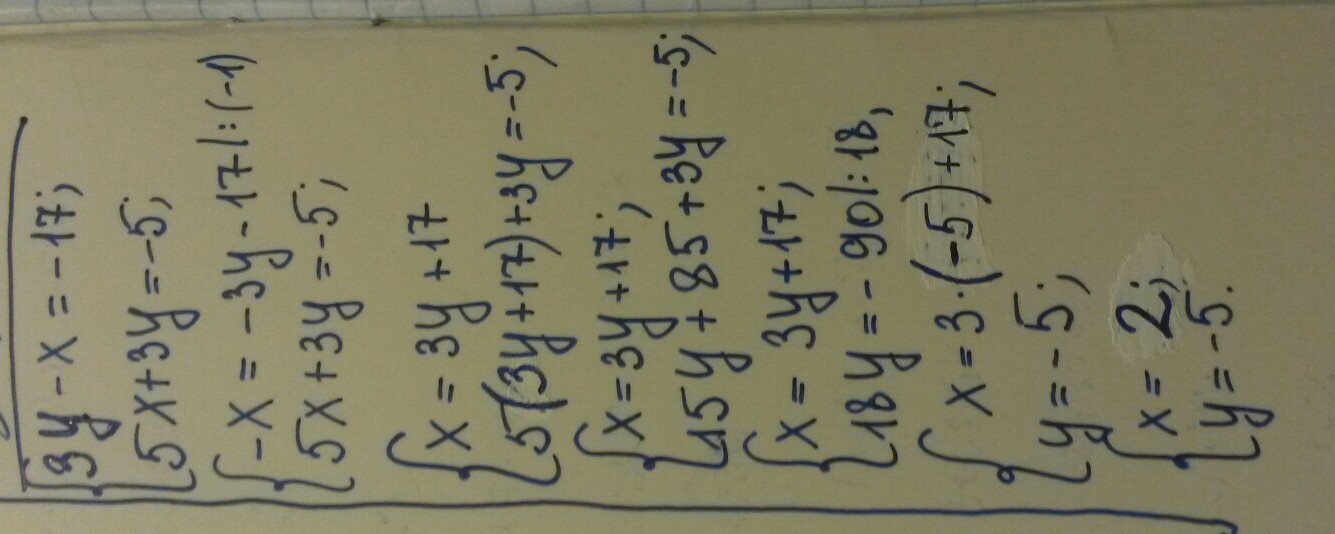 3y - x = -17;
5x + 3y = -5;
-x = -3y - 17 |:(-1)
5x + 3y = -5;
x = 3y + 17
5(3y + 17) + 3y = -5;
x = 3y + 17;
15y + 85 + 3y = -5;
x = 3y + 17;
18y = -90 |:18,
x = 3·(-5) + 17;
y = -5;
x = 2;
y = -5.